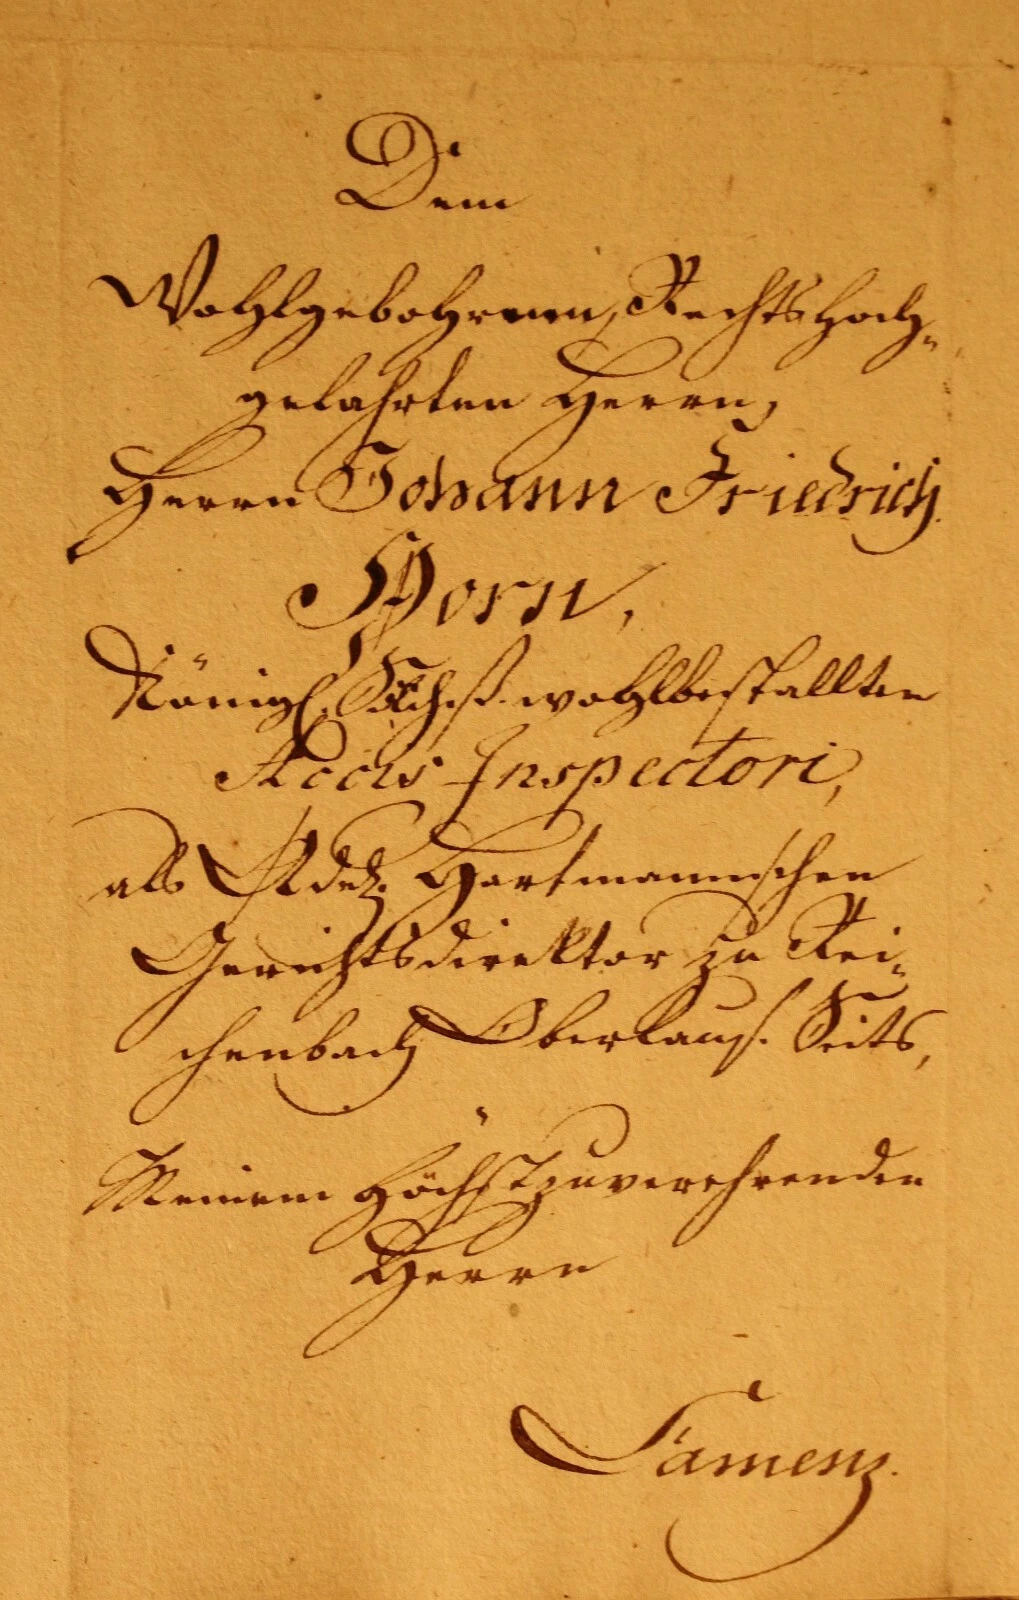 Dem
Wohlgebohrnen, Rechtshoch-
gelahrten Herrn,
Herrn Johann Friedrich
Horn,
Königl. Sächsß. wohlbestallten
Accis Inspectori,
als Adel. Hartmannschen
Gerichtsdirektor zu Rei-
chenbach Oberlaus. Seits,
Meinem Höchstzuverehrenden
Herrn
Camenz.